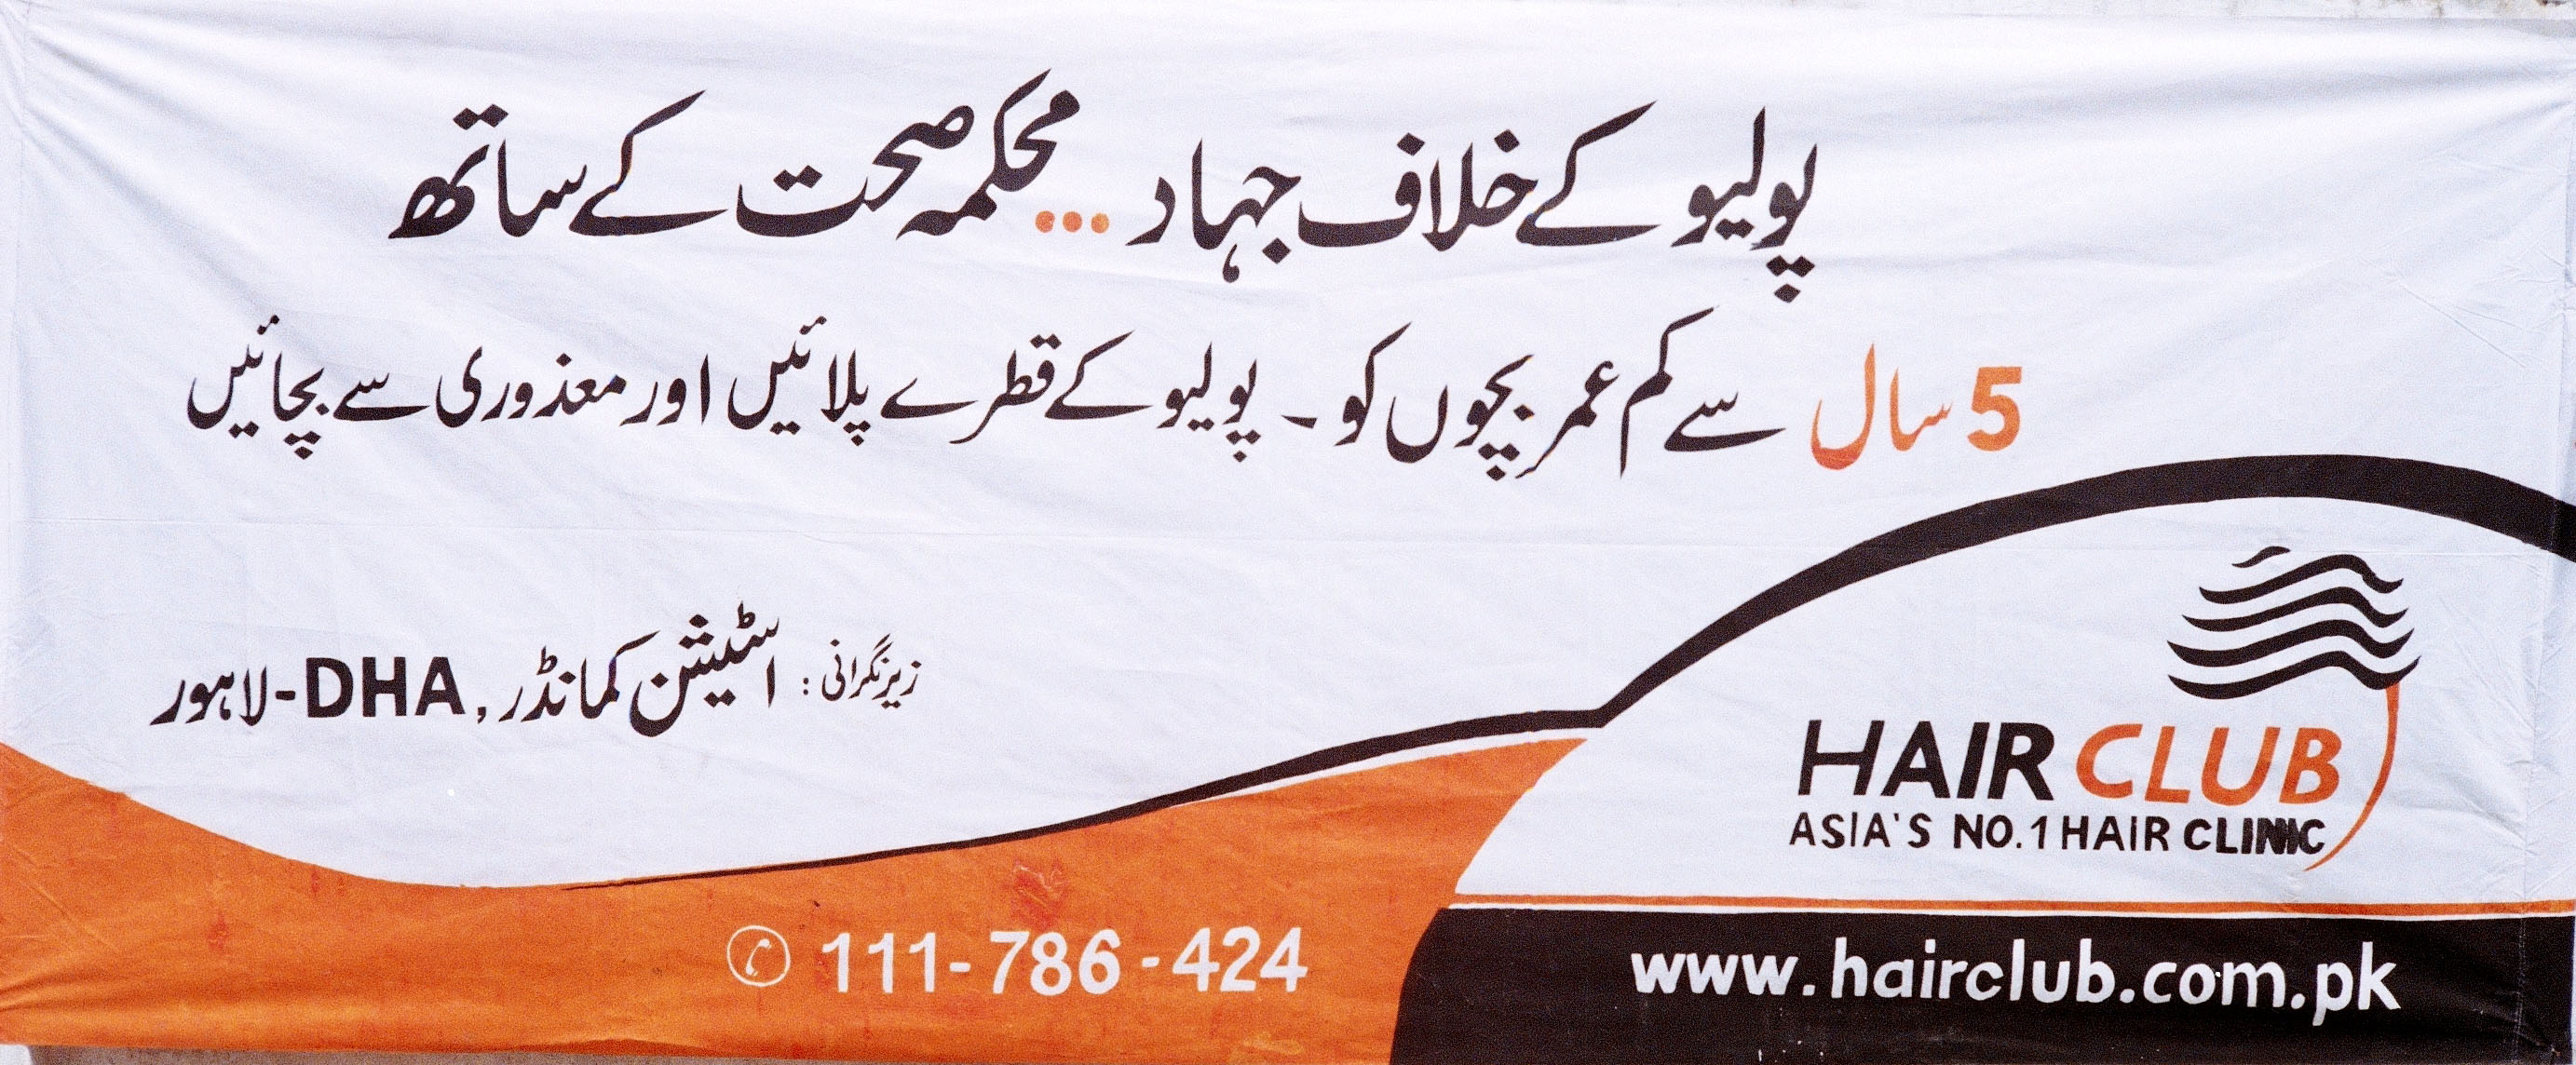 پولیو کے خلاف جہاد ... محکمہ صحت کے ساتھ
5 سال سے کم عمر بچوں کو - پولیو کے قطرے پلائیں اور معذوری سے بچائیں
زیرنگرانی : اسٹیشن کمانڈر, DHA-لاہور
HAIR CLUB
ASIA'S NO.1 HAIR CLINIC
111-786-424
www.hairclub.com.pk